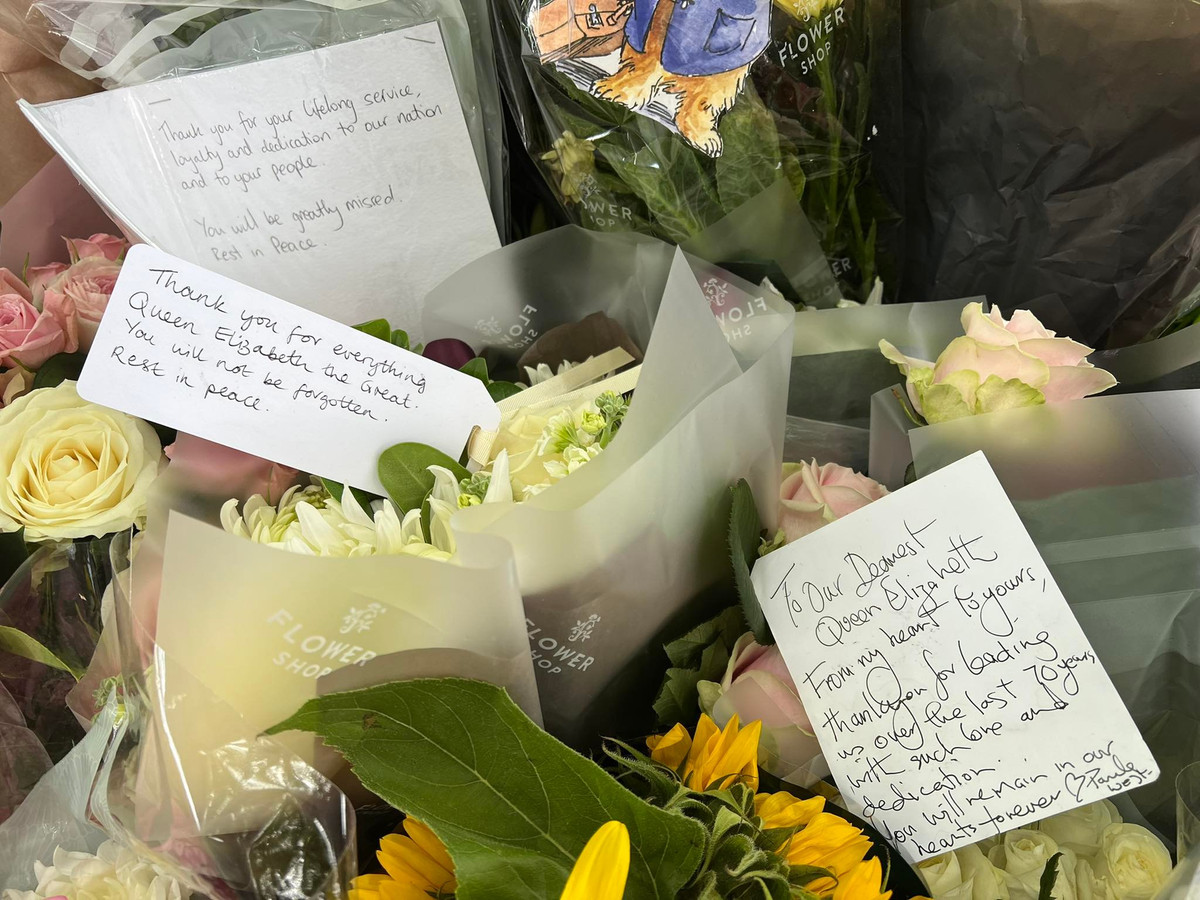 Thank you for your lifelong service,
loyalty and dedication to our nation
and to your people.
You will be greatly missed.
Rest in Peace.
Thank you for everything
Queen Elizabeth the Great.
You will not be forgotten.
Rest in peace.
To Our Dearest
Queen Elizabeth
From my heart to yours,
thankyou for leading
us over the last 70 years
with such love and
dedication.
You will remain in our
hearts forever ♡ Paula
West.
FLOWER
SHOP
FLOWER
SHOP
FLOWER
SHOP
FLOWER
SHOP
FLOWER
SHOP